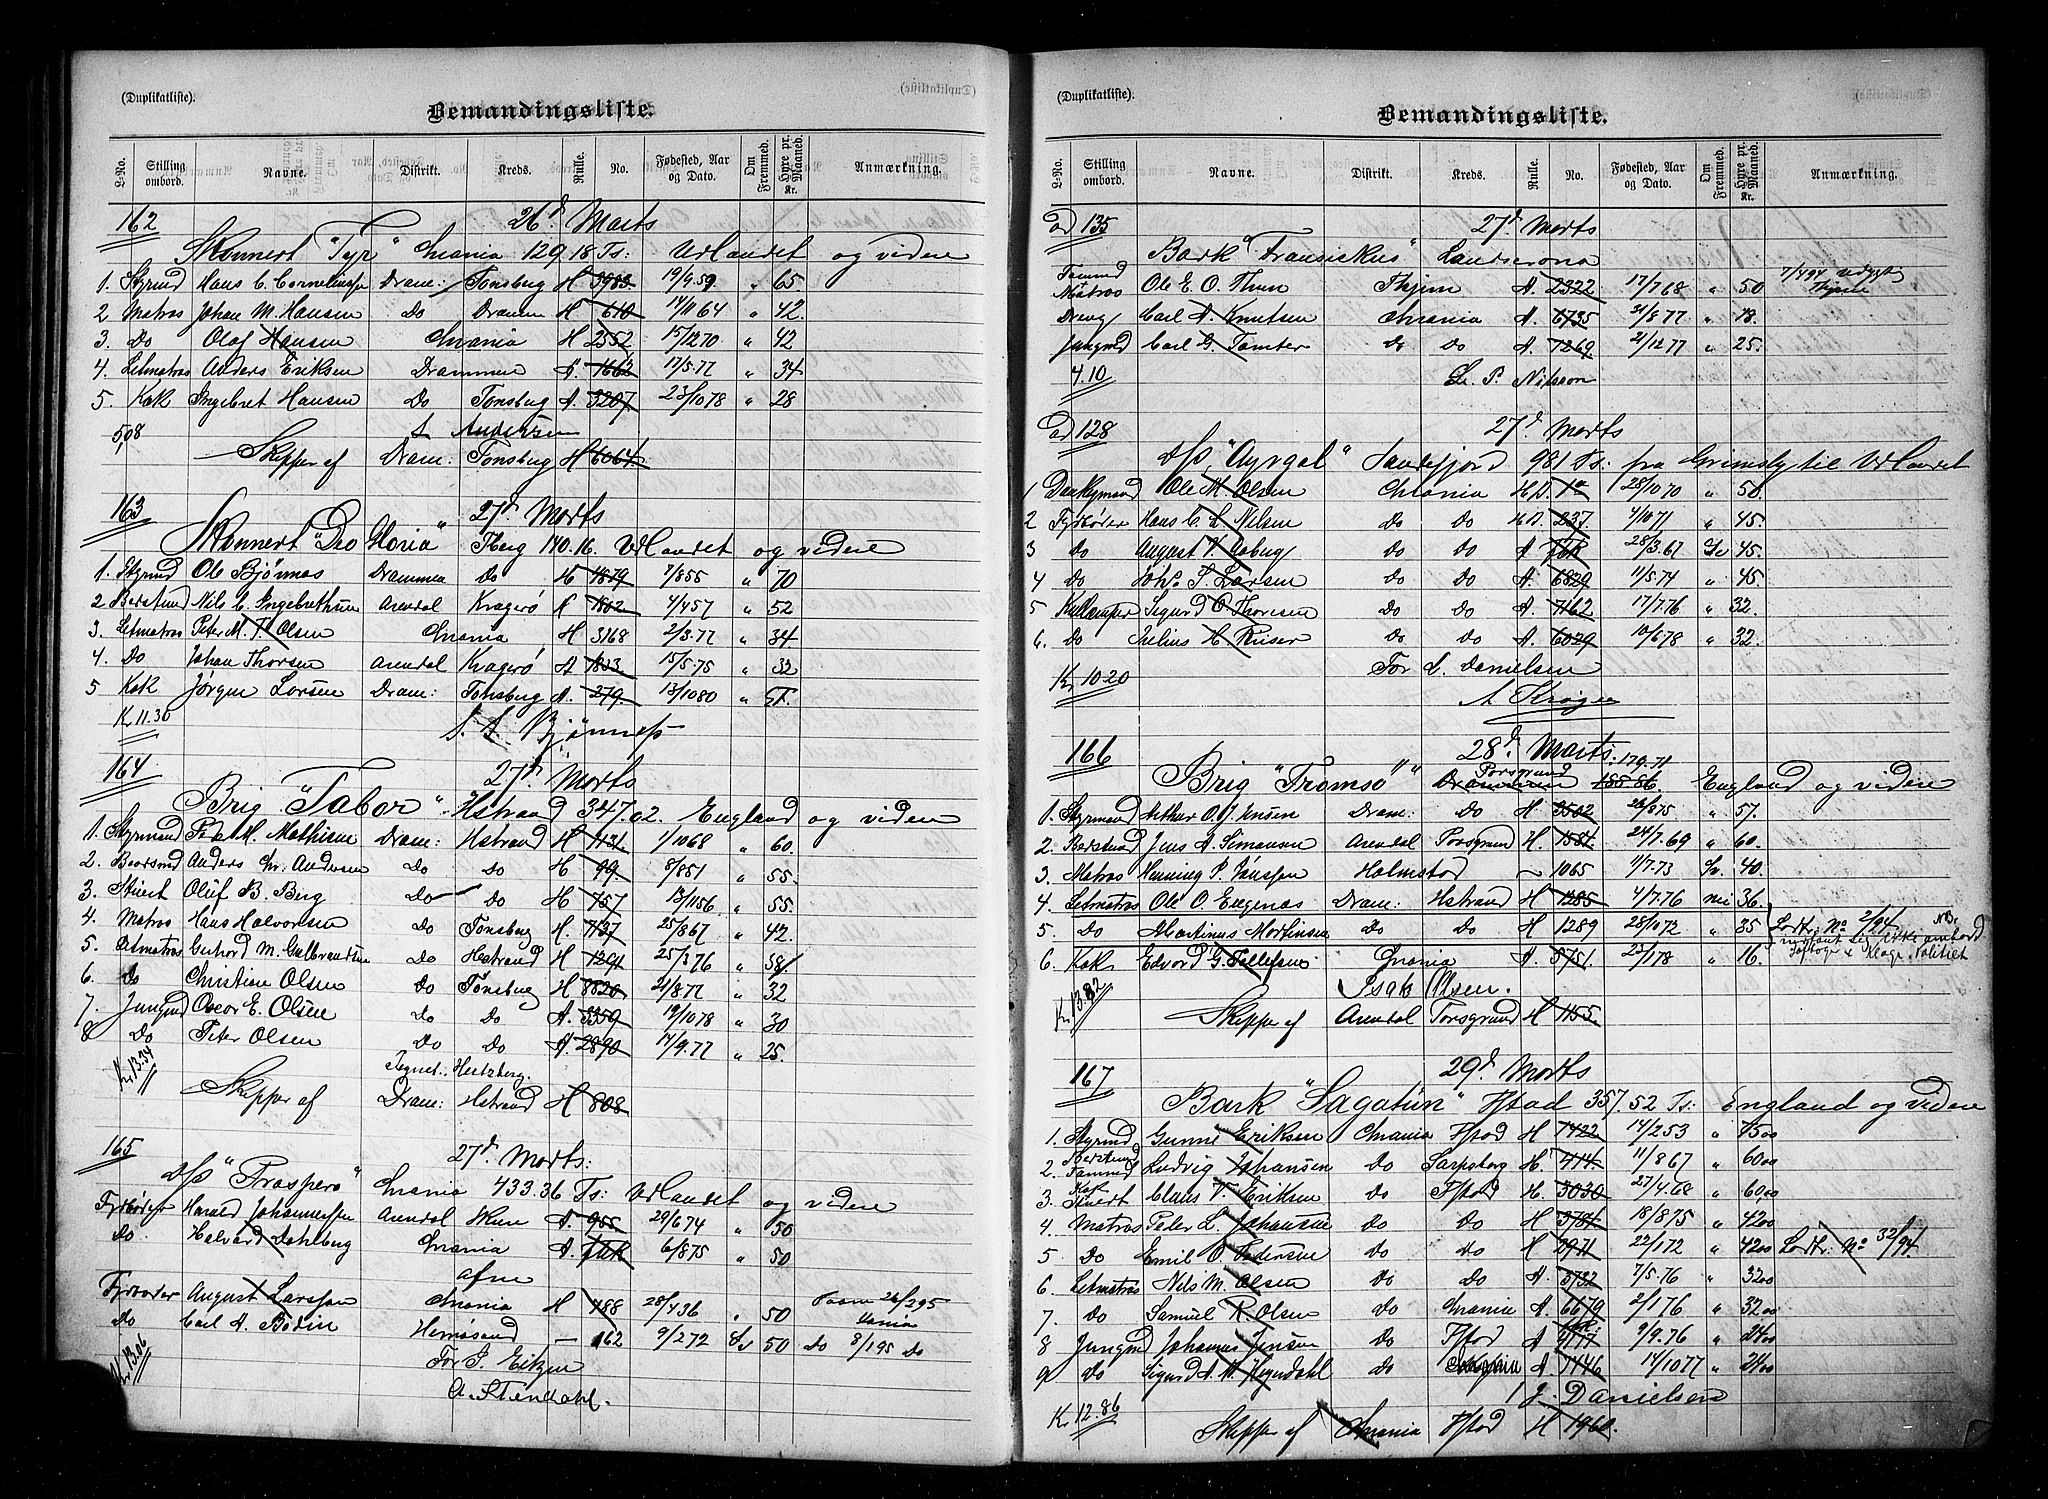 (Duplikatliste).
Bemandingsliste.
L-No. Stilling ombord. Navne. Distrikt. Kreds. Rulle. No. Fødested, Aar og Dato. Om Fremmed. Hyre pr. Maaned. Kr. Anmærkning.
162 26d Marts
Skonnert "Tyr" Chrania 129.18 Ts: Udlandet og videre
1. Styrmd Hans C. Corneliussen Dram: Tønsberg H 3983 19/9.59 " 65
2. Matros Johan M. Hansen Do Dramen H 610 14/11 64 " 42.
3. Do Olaf Hansen Chrania H 2552 15/12 70 " 42
4. Letmatros Anders Eriksen Drammen A. 1662 17/5.77 " 34
5. Kok Ingebret Hansen Do Tønsberg A. 3207 23/10 78 " 28
5,08 S Andersen
Skipper af Dram: Tønsberg H 6064
163 27d Marts
Skonnert "Deo Gloria" Tberg 140.16. Udlandet og videre
1. Styrmd Ole Bjønnes Drammen Do H 4879 7/8 55 " 70
2 Bådsmd Nils C. Ingebrethsen Arendal Kragerø H 1802 4/4 57 " 52
3. Letmatros Peter M. T. Olsen Chrania H 3168 2/3.77 " 34
4. Do Johan Thorsen Arendal Kragerø A 1823 15/5.75 " 32
5 Kok Jørgen Larsen Dram: Tønsberg A. 279. 13/10 80 "
Kr 11.30
S. A. Bjønness
164 27d Marts
Brig "Tabor" Hstrand 347.02. England og viden
1. Styrmand Peder M. Mathisen Dram: Hstrand H 1131 1/10 68 " 60.
2. Baadsmd Anders Chr. Andersen Do Do H 99. 8/8 51 " 55.
3. Stuert Oluf B. Berg Do Do H 757 13/11 56 " 55.
4. Matros Hans Halvorsen Do Tønsberg H. 7137 25/8 67 " 42.
5. Letmatros Gerhard M. Gulbrandsen Do Hstrand H 1291 25/3 76 " 38
6. Do Christian Olsen Do Tønsberg H 8820 21/8.77 " 32
7. Jungmd Oscar E. Olsen Do Do A. 3359 19/10 78 " 30
8 Do Peter Olsen Do Do A. 2890 14/9.77 " 25.
Kr 13.34 Reignet: Hertzberg.
Skipper af Dram: Hstrand H 808
165 27d Marts:
D/S "Prospero" Chrania 433.36 Ts: Udlandet og videre
Fyrbøder Harald Johannessen Arendal Skien A. 955 29/6 74 " 50
Do Halvard Dahlberg Chrania A. 6/8 75 " 50
afm
Fyrbøder August Larssen Chrania H 488 28/4 36 " 50 Paam 26/2 95
Do Carl A. Bodin Hernøsand — 162 9/2 72 Sv 50 Do 8/1 95 Do
Kr 13.06 For S. Eitzen
A. Stendahl.
(Duplikatliste).
Bemandingsliste.
L-No. Stilling ombord. Navne. Distrikt. Kreds. Rulle. No. Fødested, Aar og Dato. Om Fremmed. Hyre pr. Maaned. Kr. Anmærkning.
ad 135 27d Marts
Bark "Fransiskus" Landscrona
Tømmd + Matros Ole E. O. Thun Thjem A. 2322 17/7 68 " 50 7/4 94 udgyt Thjem
Dreng Carl A. Knutsen Chrania A. 6735 21/8 77 " 18.
Jungmd Carl G. Tomter Do Do A. 7269 21/12 77 " 25.
4.10 L. P. Nilsson
ad 128 27d Marts
D/S "Ayrgal" Sandefjord 981 Ts: fra Grimsby til Udlandet
1 Donkeymand Ole M. Olsen Chrania H D. 28/10 70 " 50
2 Fyrbøder Hans C. L. Nilsen Do Do H D. 237 4/10 71 " 45.
3 Do August V. Aaberg Do Do A 28/3.67 Sv 45.
4 Do Johs. S. Larsen Do Do A. 6829 11/5.74 " 45.
5 Kullemper Sigurd O. Thoresen Do Do A. 7162 17/7.76 " 32.
6. Do Julius H. Riiser Do Do A. 6029 10/6 78 " 32.
Kr 10.20 For L. Danielsen
A Krøger
166 28d. Marts: 179.71
Brig "Tromsø" Porsgrund Drammen 185.86. England og videre
1. Styrmand Arthur O. J. Jensen Dram: Do H. 2502 26/8 75 " 57.
2. Bådsmd Jens A. Simonsen Arendal Porsgrund H. 1581 24/7.69 " 60.
3. Matros Henning P. Jönsson Holmstad ~ 1065 11/7.73 Sv. 40.
4. Letmatros Ole O. Engenæs Dram: Hstrand H 1285 4/7.76 nei 36
5. Do Martinus Mortinsen Do Do H 1289 28/10 72 " 35 Lodtr: No 2/94 NB.
indfant sig ikke ombord
6. Kok Edvard G. Tollefsens Chrania A. 5751 23/1 78 " 16. Klage Politiet
Kr 13.82 Isak Olsen.
Skipper af Arendal Porsgrund H 1155.
167 29d Marts
Bark "Sagatun" Fstad 357.52 Ts: England og videre
1. Styrmd Gunni Eriksen Chrania Fstad H 1422 14/2 53 " 75 00
2. Bådsmd Tømmd Ludvig Johansen Do Sarpsborg H. 414 11/8 67 " 60 00
3. Kok Stuert Claus V. Eriksen Do Fstad H. 3030 27/4.68 " 60 00
4. Matros Peter L. Johansen Do Do H 3781 18/8 75 " 42 00
5. Do Emil O. Pedersen Do Do H 2971 22/1 72 " 42 00 Lodtr: No 32/94
6. Letmatros Nils M. Olsen Do Do A. 3732 7/5.76 " 32 00
7. Do Samuel R. Olsen Do Chrania A. 6679 2/1 76 " 32 00
8 Jungmd Johannes Jensen Do Fstad A 9/9.76 " 24 00
9 Do Sigurd A. M. Hegndahl Do Chrania A. 7146 14/10 77 " 24 00
Kr 12.86 J. Danielsen
Skipper af Chrania Fstad H 1960.